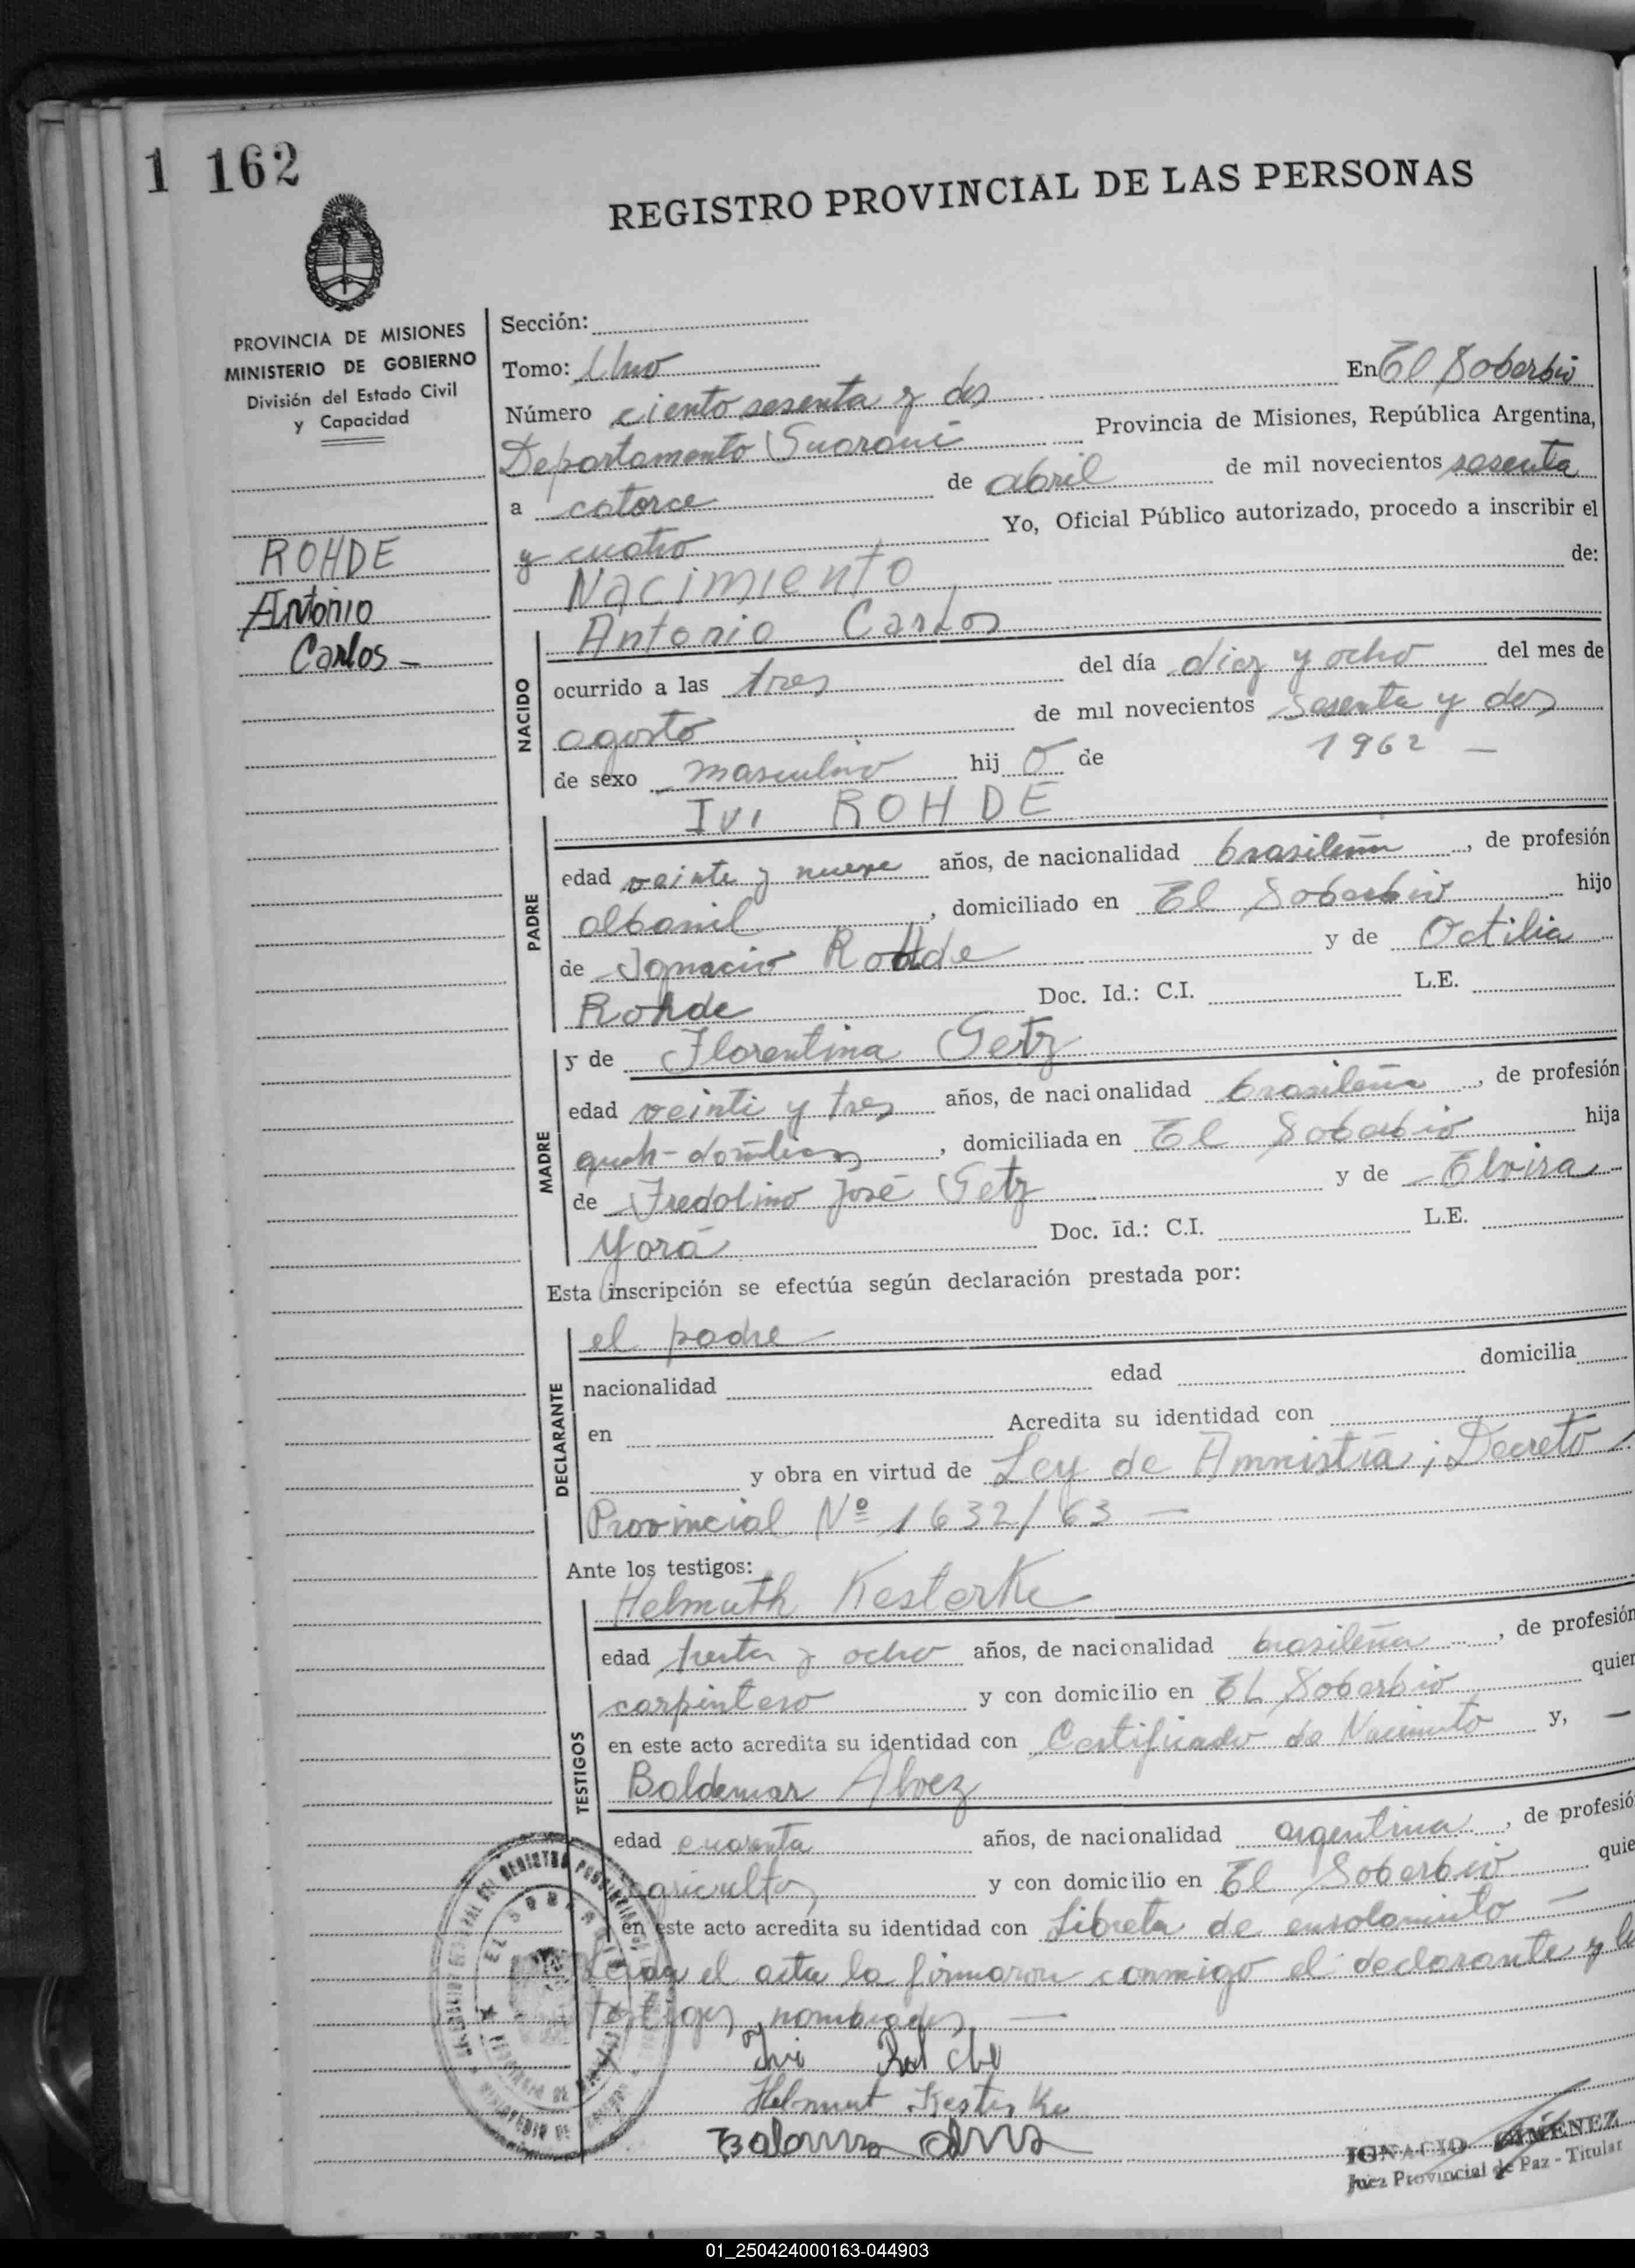 1 162
REGISTRO PROVINCIAL DE LAS PERSONAS
PROVINCIA DE MISIONES
MINISTERIO DE GOBIERNO
División del Estado Civil
y Capacidad
ROHDE
Antonio
Carlos -
Sección:
Tomo: Uno
En El Soberbio
Número ciento sesenta y dos
Departamento Guaraní Provincia de Misiones, República Argentina,
a catorce de abril de mil novecientos sesenta
y cuatro Yo, Oficial Público autorizado, procedo a inscribir el
Nacimiento de:
NACIDO
Antonio Carlos
ocurrido a las tres del día diez y ocho del mes de
agosto de mil novecientos sesenta y dos
1962 -
de sexo masculino hij o de
PADRE
Ivi ROHDE
edad veinte y nueve años, de nacionalidad brasileña, de profesión
albanil, domiciliado en El Soberbio hijo
de Ignacio Rohde y de Octilia
Rohde Doc. Id.: C.I. L.E.
MADRE
y de Florentina Getz
edad veinti y tres años, de nacionalidad brasileña, de profesión
domiciliada en El Soberbio hija
de Fredolino José Getz y de Elvira
Yora Doc. Id.: C.I. L.E.
Esta inscripción se efectúa según declaración prestada por:
DECLARANTE
el padre
nacionalidad edad domicilia
en Acredita su identidad con
y obra en virtud de Ley de Amnistía; Decreto
Provincial Nº 1632/63 -
Ante los testigos:
TESTIGOS
Helmuth Kesterke
edad treita y ocho años, de nacionalidad brasileña, de profesión
carpintero y con domicilio en El Soberbio quien
en este acto acredita su identidad con Certificado de Nacimiento y, -
Baldemar Alvez
edad cuarenta años, de nacionalidad argentina, de profesió
agricultor y con domicilio en El Soberbio quie
en este acto acredita su identidad con Libreta de enrolamiento -
Leida el acta la firmaron conmigo el declarante y lo
testigos nombrados -
Ivi Rohde
Helmut Kesterke
IGNACIO GIMENEZ
Juez Provincial de Paz - Titular
01_250424000163-044903